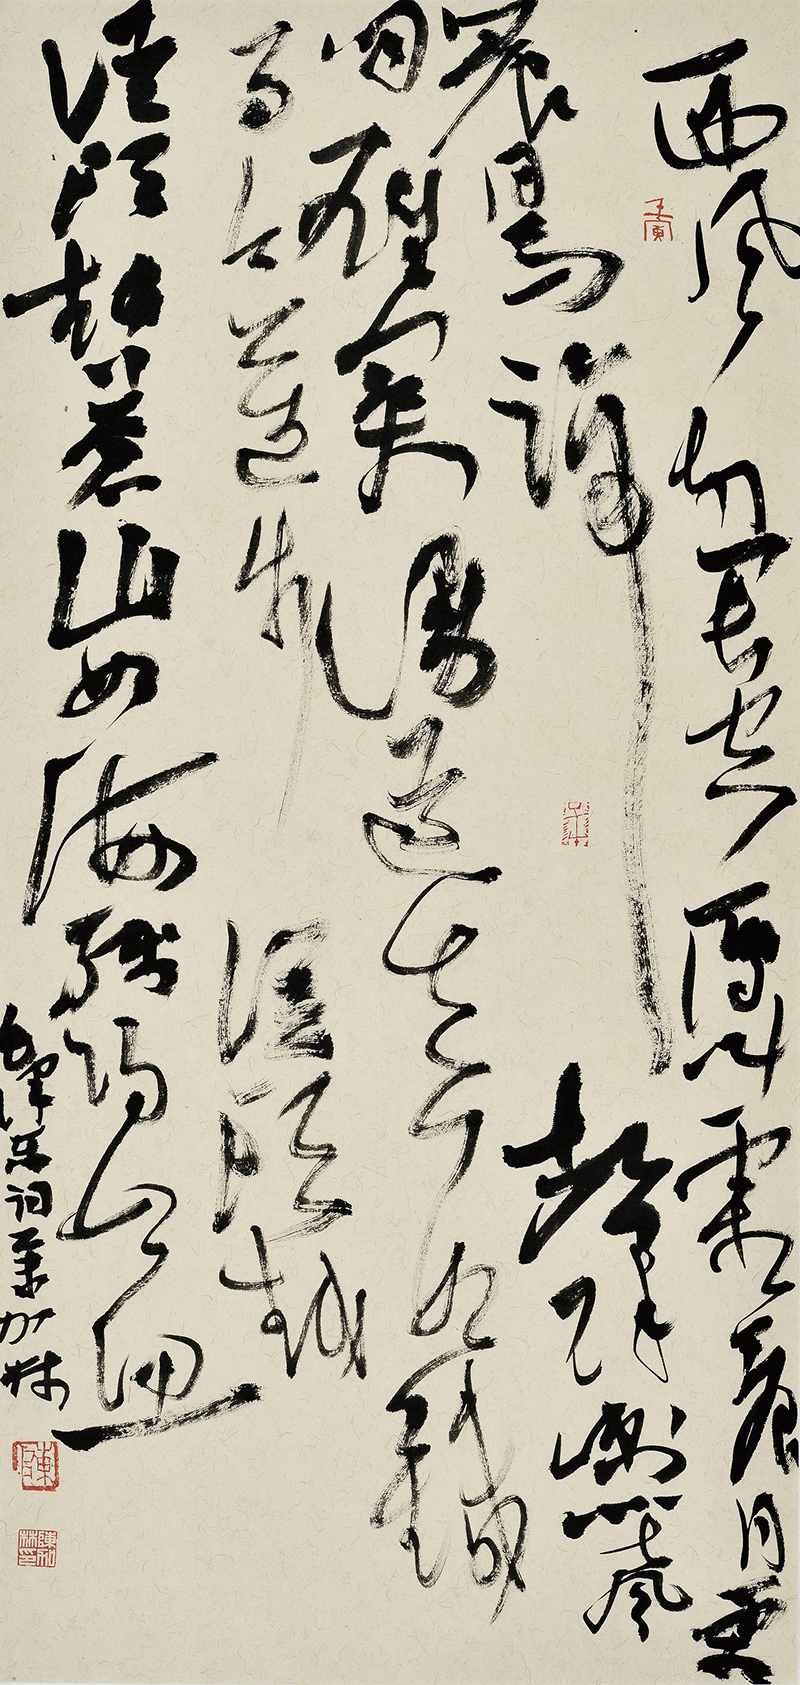 西风烈长空雁叫霜晨月霜
晨月马蹄声碎喇叭声
咽雄关漫道真如铁
而今迈步从头越
从头越苍山如海残阳如血
毛泽东词 加林
壬寅
陈